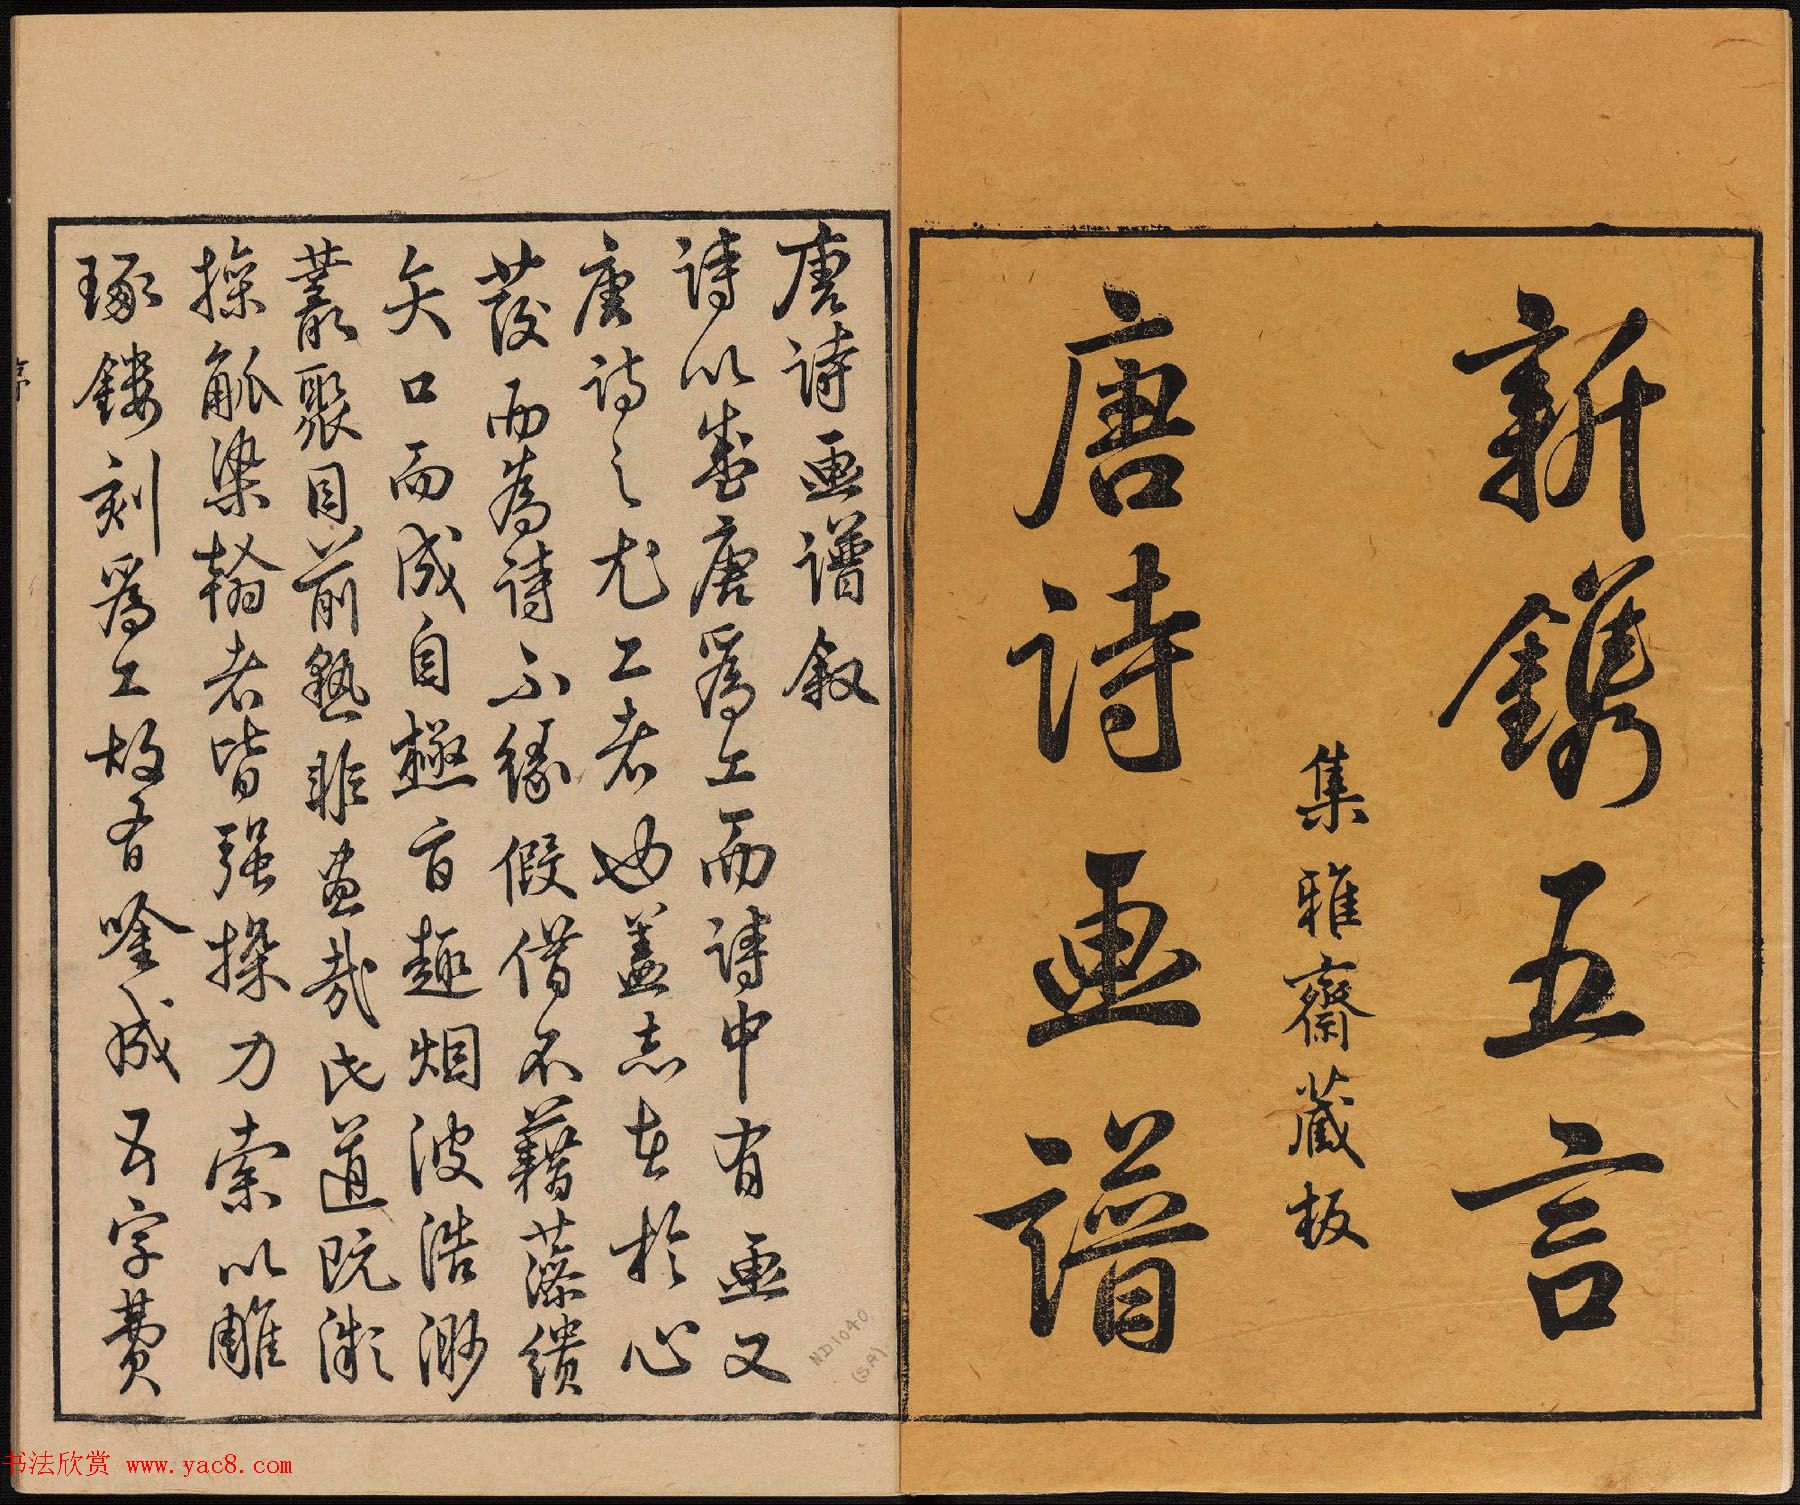 新鐫五言
集雅齋藏板
唐詩画譜
唐詩画譜叙
詩以盛唐爲工而詩中有画又
唐詩之尤工者也蓋志在於心
發而為詩不緣假借不藉藻繢
矢口而成自極旨趣烟波浩渺
叢聚目前孰非畫哉此道既澌
操觚染翰者皆強操力索以雕
琢鏤刻爲工故有唫成五字費
序
ND1040
(S.A)
书法欣赏 www.yac8.com